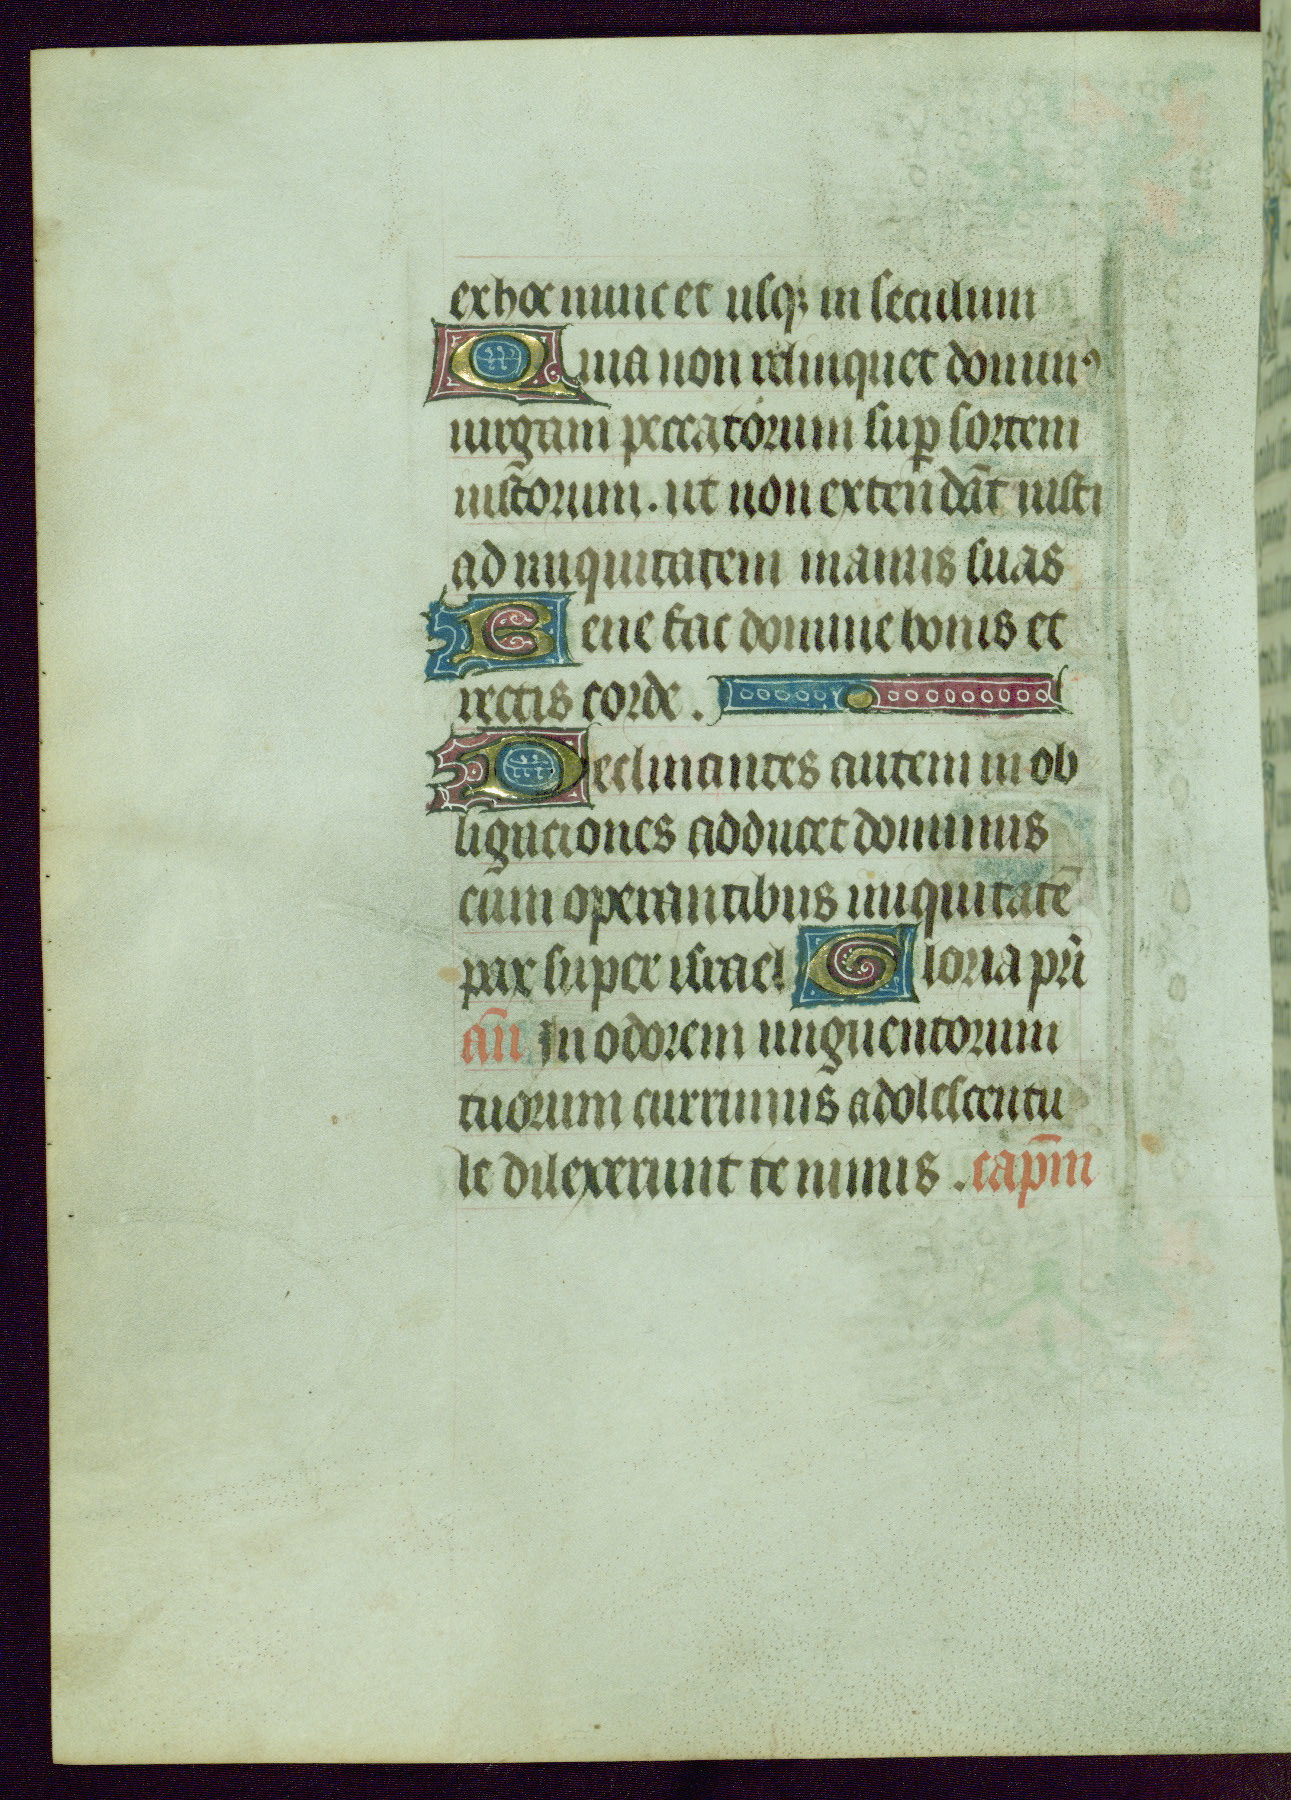 ex hoc nunc et usq; in seculum
Quia non relinquet dominꝰ
uirgam peccatorum sup̱ sortem
iustorum. ut non extendāt iusti
ad iniquitatem manus suas
Bene fac domine bonis et
rectis corde.
Declinantes autem in ob
ligaciones adducet dominus
cum operantibus iniquitatē
pax super israel Gloria pr̄i
an̄ In odorem unguentorum
tuorum currimus adolescentu
le dilexerunt te nimis. cap̄m